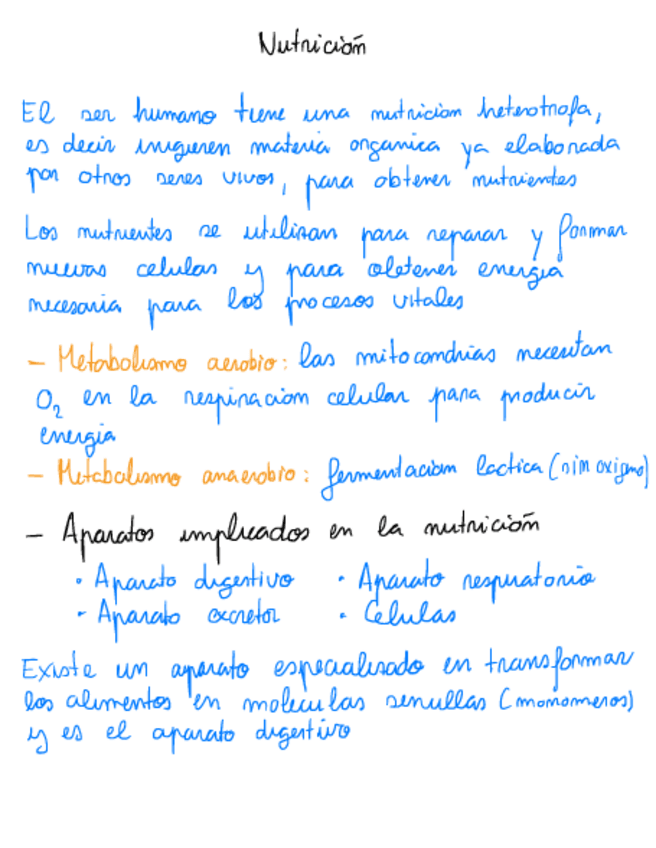 Nutrición
El ser humano tiene una nutricion heterotrofa,
es decir ingieren materia organica ya elaborada
por otros seres vivos, para obtener nutrientes
Los nutrientes se utilizan para reparar y formar
nuevas celulas y para obtener energia
necesaria para los procesos vitales
- Metabolismo aerobio: las mitocondrias necesitan
O₂ en la respiracion celular para producir
energia
- Metabolismo anaerobio: fermentacion lactica (sin oxigeno)
- Aparatos implicados en la nutrición
· Aparato digestivo · Aparato respiratorio
- Aparato excretor · Celulas
Existe un aparato especializado en transformar
los alimentos en moleculas sencillas (monomeros)
y es el aparato digestivo